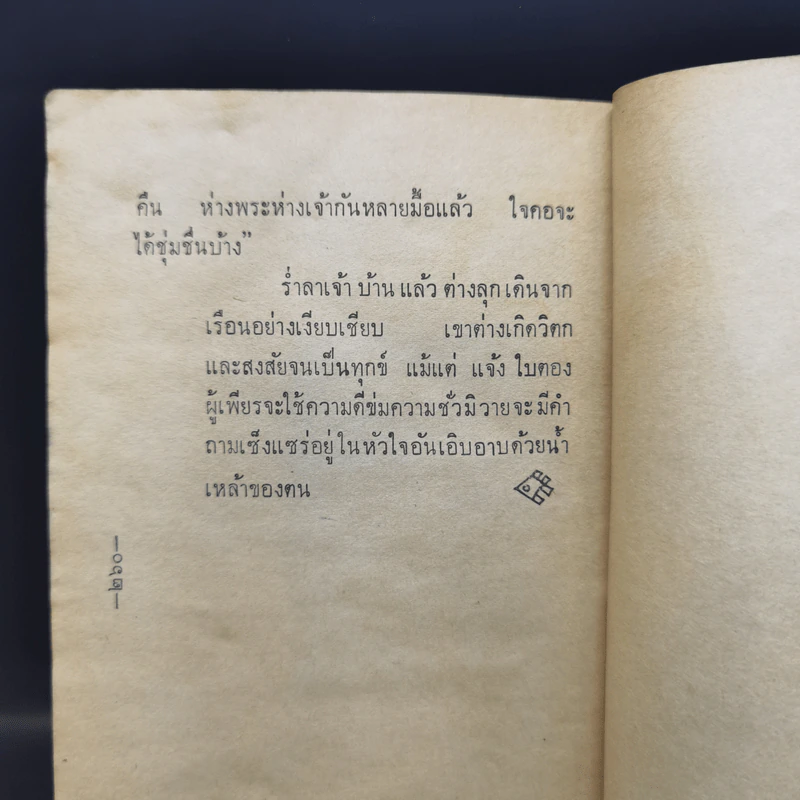 คืน ห่างพระห่างเจ้ากันหลายมื้อแล้ว ใจคอจะ
ได้ชุ่มชื่นบ้าง”
ร่ำลาเจ้า บ้าน แล้ว ต่างลุก เดินจาก
เรือนอย่างเงียบเชียบ เขาต่างเกิดวิตก
และสงสัยจนเป็นทุกข์ แม้แต่ แจ้ง ใบตอง
ผู้เพียรจะใช้ความดีข่มความชั่วมิวายจะ มีคำ
ถามเซ็งแซร่อยู่ ในหัวใจอันเอิบอาบด้วยน้ำ
เหล้าของตน
—๒๖๐—